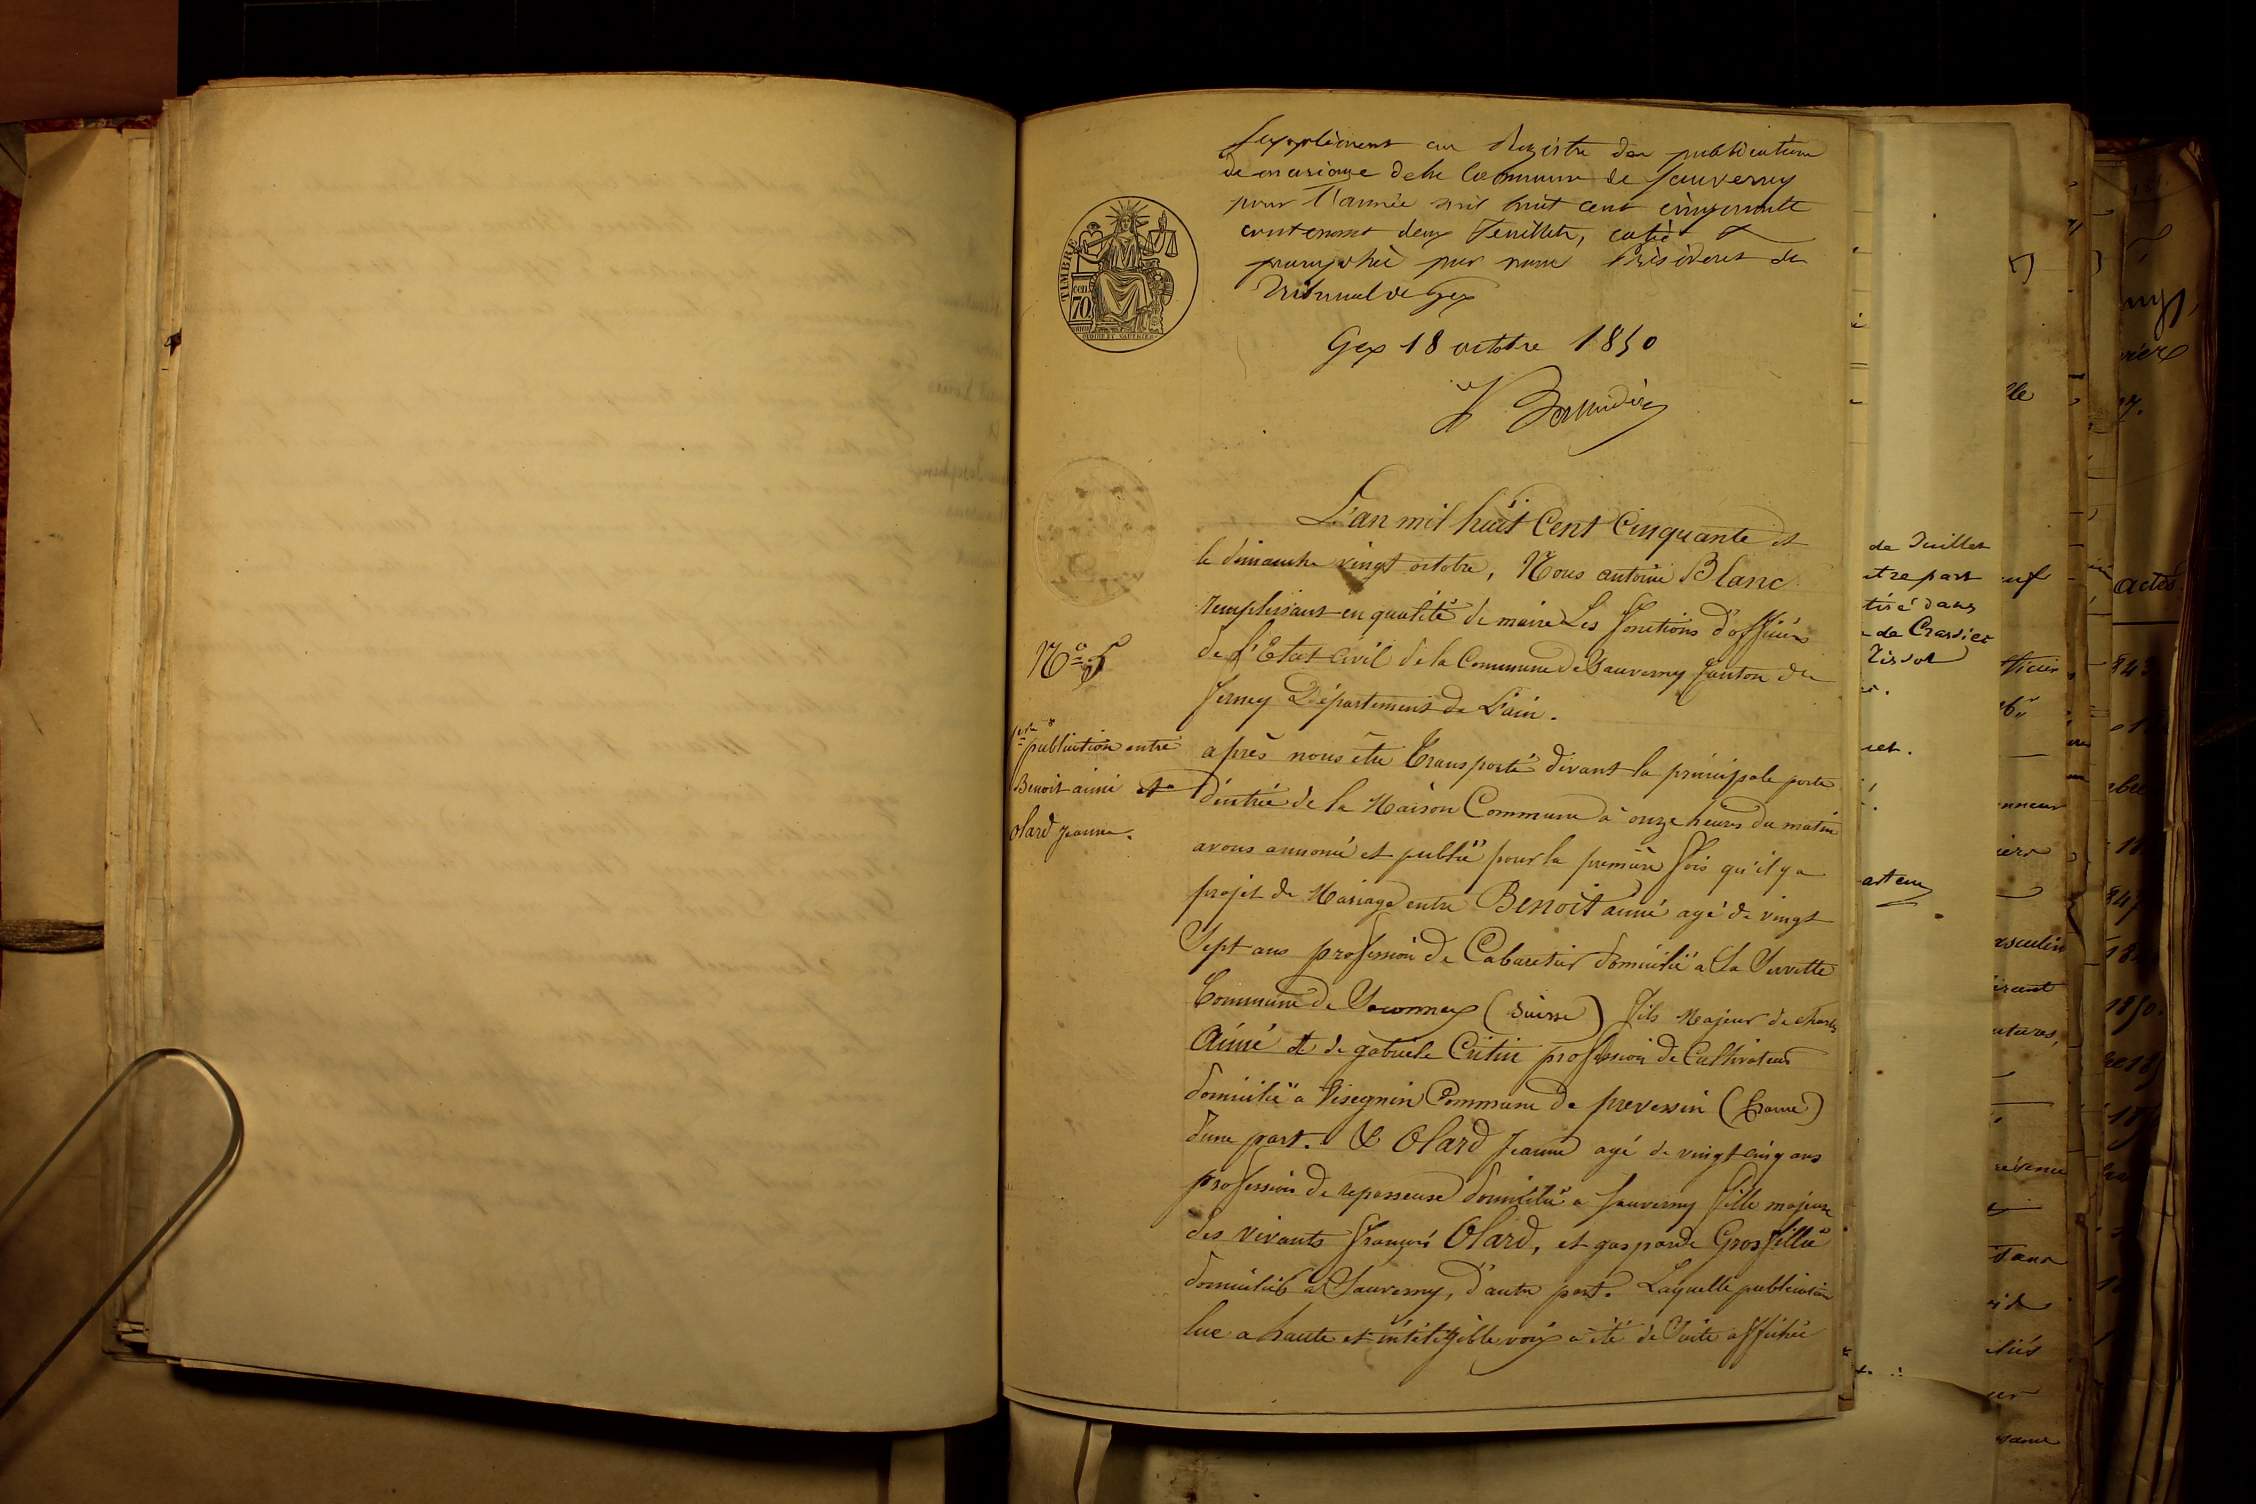 Supplément au Registre des publications
de mariage de la Commune de Sauverny
pour l'année mil huit cent cinquante
contenant deux feuillets, coté et
paraphé par nous Président du
Tribunal de Gex
Gex 18 octobre 1850
TIMBRE
cen.
70
L'an mil huit Cent Cinquante et
le dimanche vingt octobre, Nous antoine Blanc
remplissant en qualité de maire Les fonctions d'officier
de l'Etat Civil de la Commune de Sauverny Canton de
ferney Département de L'ain.
N° 5
1ere publication entre
Benoit aimé et
Olard jeanne.
après nous être Transporté devant la principale porte
d'entrée de la Maison Commune à onze heures du matin
avons annoncé et publié pour la première fois qu'il y a
projet de Mariage entre Benoit aimé agé de vingt
Sept ans profession de Cabaretier domicilié a la Servette
Commune de Saconnex (Suisse) fils Majeur de charles
Aimé et de gabriele Critin profession de Cultivateur
domicilié a Vesegnin Commune de prevessin (france)
d'une part. & Olard Jeanne agé de vingt cinq ans
profession de repasseuse domicilié a Sauverny fille majeure
des vivants françois Olard, et gasparde Grosfillié
domiciliés a Sauverny, d'autre part. Laquelle publication
lue a haute et intéligible voix a été de Suite affichée
de Juillet
etre part
tiré dans
de Crassier
Tissot
actes